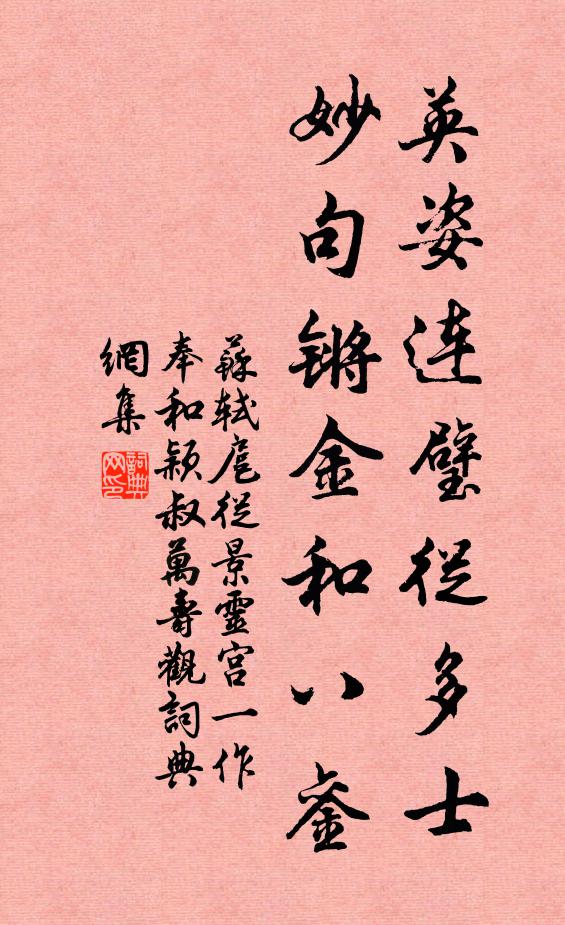 英姿连璧從多士
妙句锵金和八銮
蘇軾扈從景靈宫一作
奉和颍叔萬壽觀詞典
網集
詞典网印